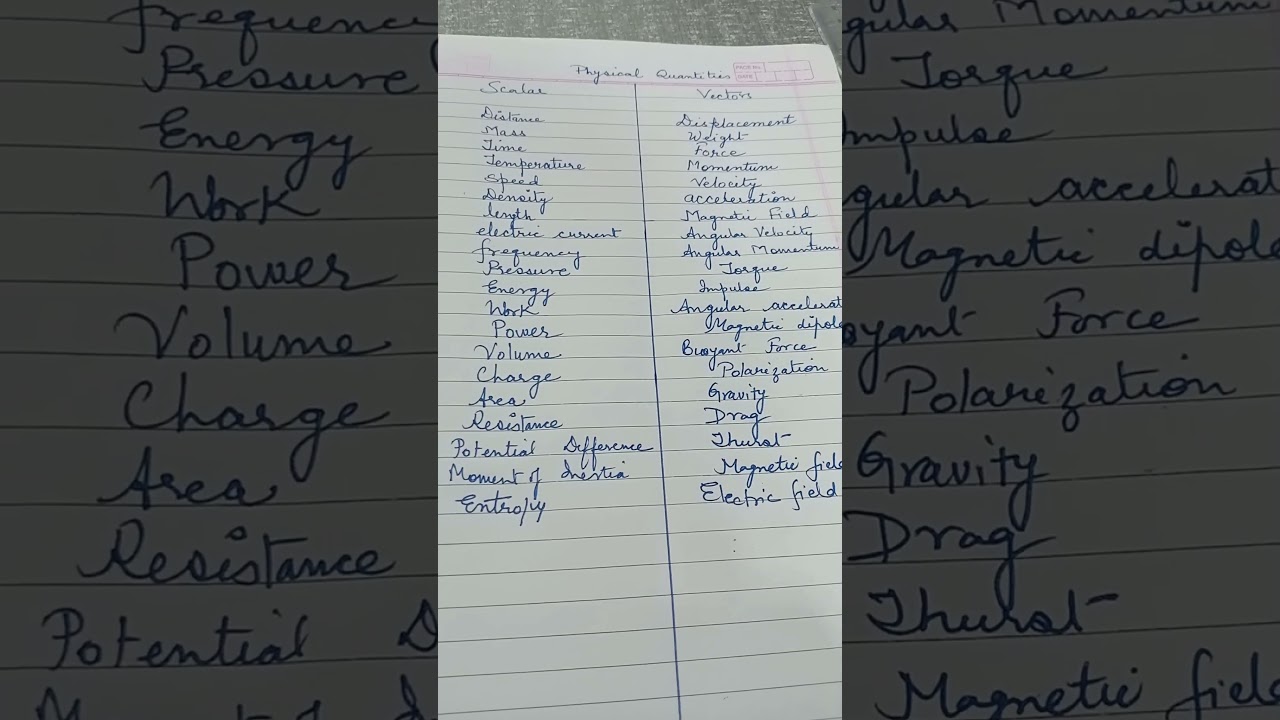 Physical Quantities
PAGE NO.
DATE
Scalar Vectors
Distance Displacement
Mass Weight
Time Force
Temperature Momentum
Speed Velocity
Density acceleration
length Magnetic Field
electric current Angular Velocity
frequency Angular Momentum
Pressure Torque
Energy Impulse
Work Angular accelerat
Power Magnetic dipole
Volume Buoyant Force
Charge Polarization
Area Gravity
Resistance Drag
Potential Difference Thurst
Moment of Inertia Magnetic field
Entropy Electric field
frequency
Pressure
Energy
Work
Power
Volume
Charge
Area
Resistance
Potential D
gular Momentum
Torque
mpulse
gular accelerat
Magnetic dipole
oyant Force
Polarization
Gravity
Drag
Thurst
Magnetic field